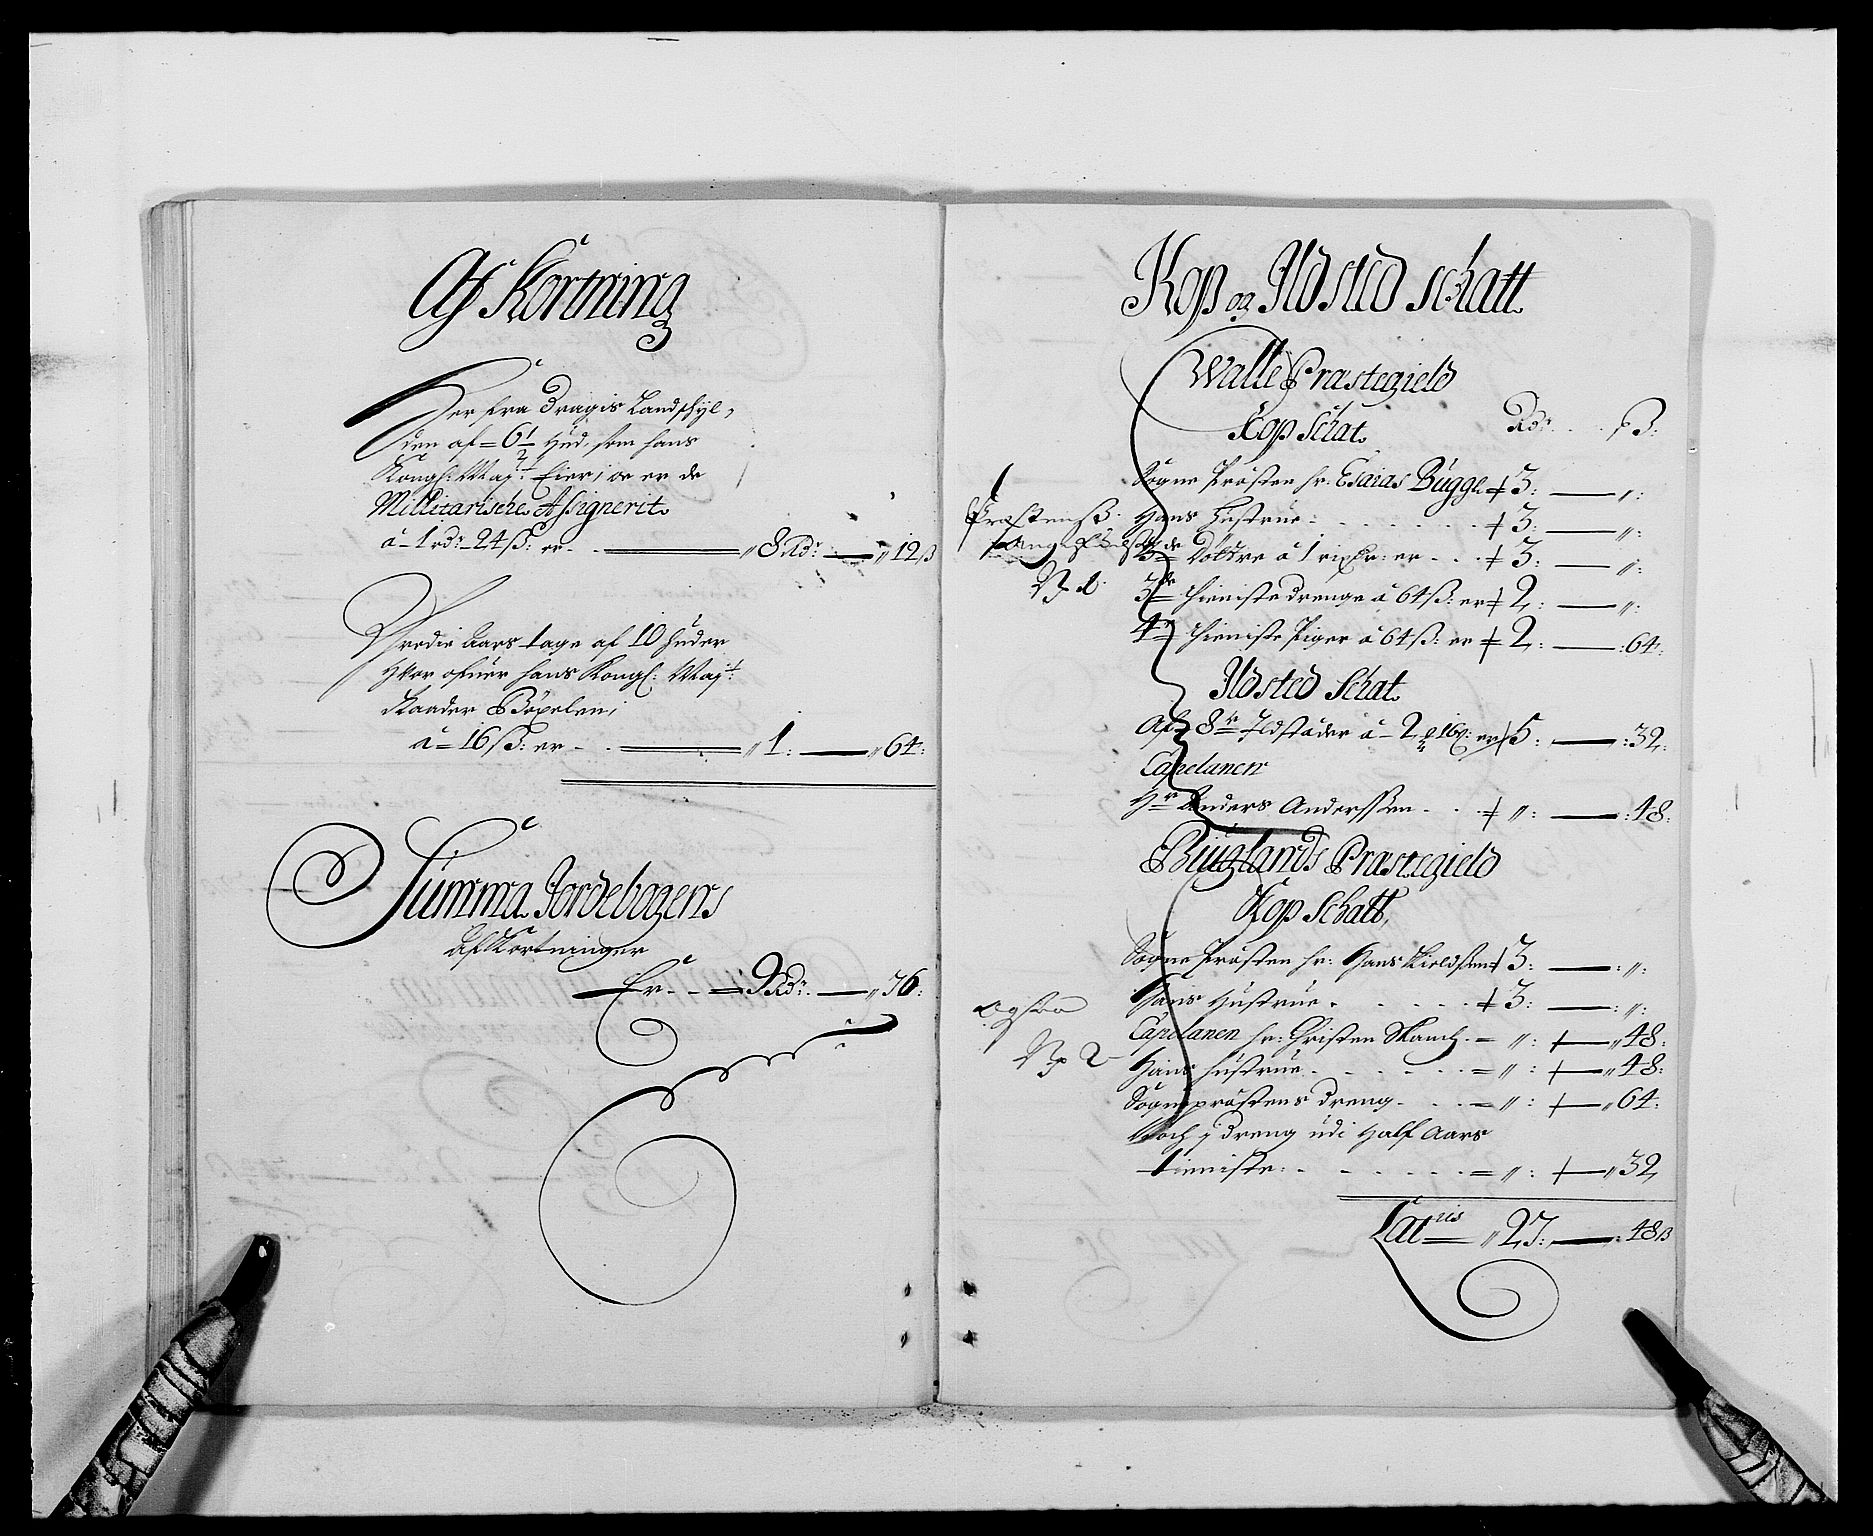 Af Kortning
Her fra Dragis Landschyl,
den af = 6 1/2 Hud, som hans
Kongl: May:t Eier, oc er de
Millitarische Assignerit
á - 1 rdr - 24 ß: er - - 8 Rdr: — 12 ß
Tredie Aars tage af 10 huder
Hvor ofuer hans Kongl: May:t
Raader Böxelen,
á = 16 ß: er - - 1: — 64:
Summa Jordebogens
Afkortninger
Er - - 9 Rdr: — 76:
Kop og Ildsted schatt
Walle Præstegield
Kop Schat. Rdr: ß:
Sogne Presten hr: Esaias Bugge 3: — ":
Hans Hustrue - 3: — ":
3de Döttre á 1 rixdr: er - 3: — ":
3de thieniste drenge á 64 ß: er 2: — ":
4re thieniste Piger á 64 ß: er 2: — :64:
Præstens
Angif
No 1
Ildsted Schat
Af 8te Ildstæder á - 2 16 ß: er 5: — :32:
Capelanen
Hr Anders Anderssen - ": — :48:
Buuglands Præstegield
Kop Schatt
Sogne Presten hr: Hans 3: — :":
Hans Hustrue - 3: — :":
Capelanen hr: Christen Munch - = ": — "48:
Hans hustrue - = ": — "48:
Sogneprestens dreng - = ": — "64:
Noch 1 dreng udi Half Aars
tieniste: - = ": — "32
No 2
Latris " 27: — :48 ß